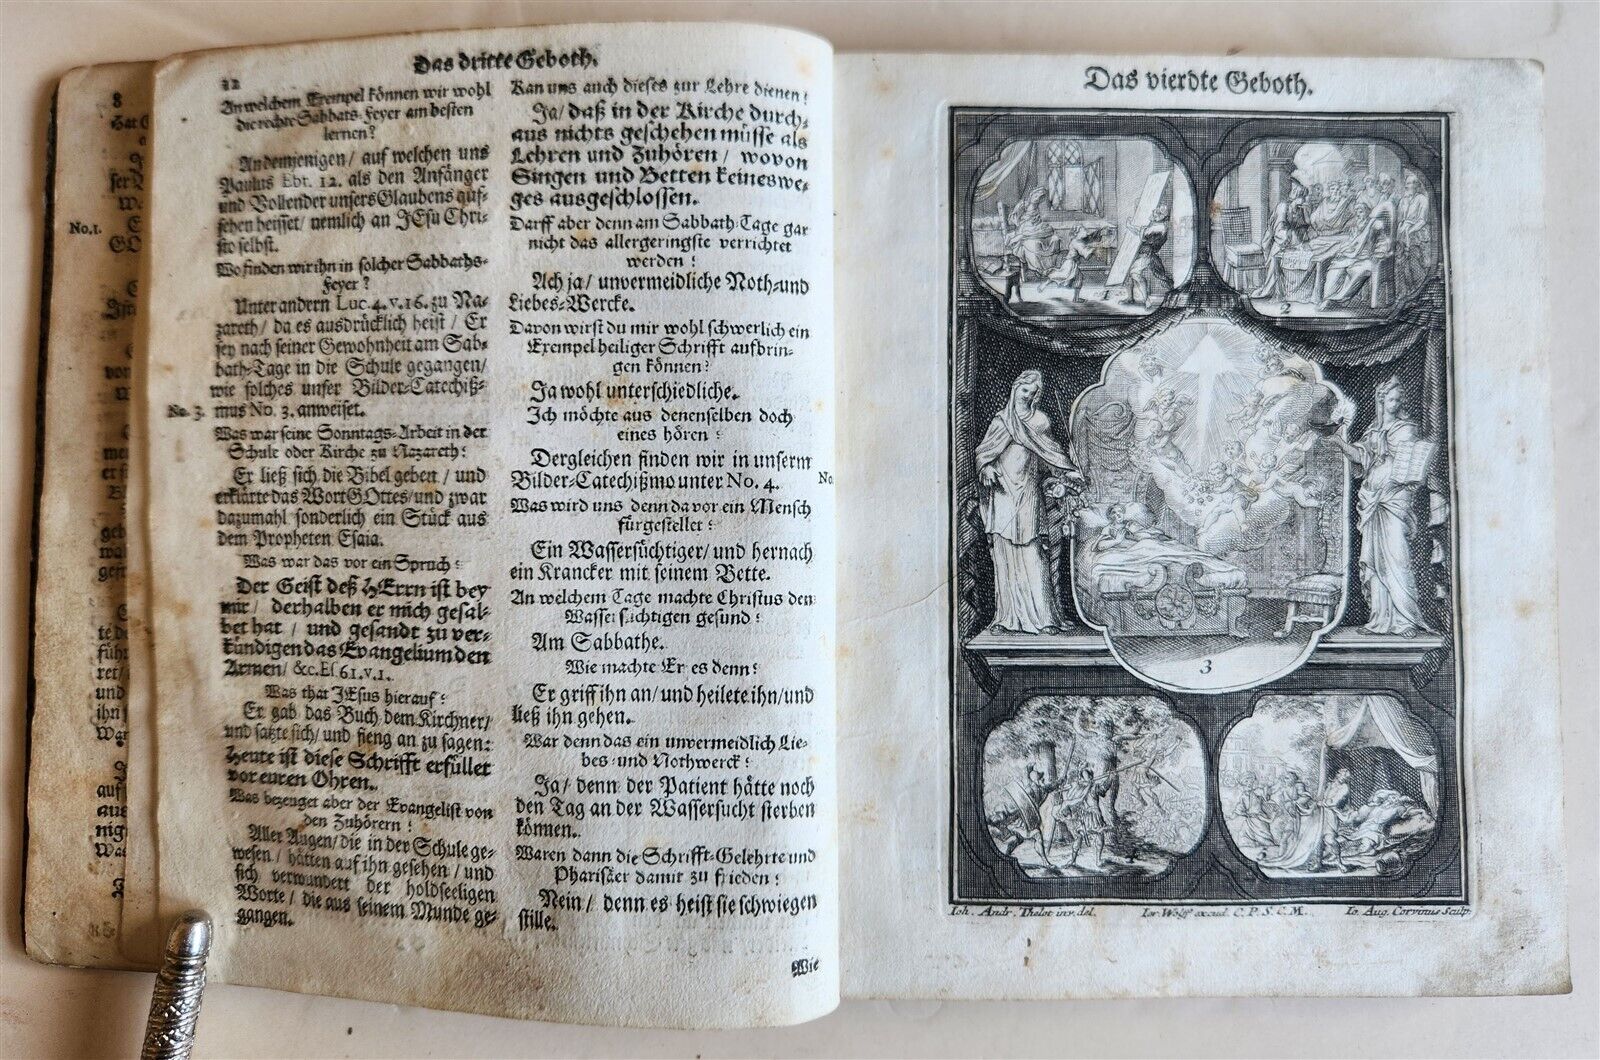 8
No. 1.
Das dritte Geboth.
12
An welchem Exempel können wir wohl
die rechte Sabbats-Feyer am besten
lernen?
An demjenigen / auf welchen uns
Paulus Ebr. 12. als den Anfänger
und Vollender unsers Glaubens auf-
sehen heisset / nemlich an JEsu Chri-
sto selbst.
Wo finden wir ihn in solcher Sabbaths-
Feyer?
Unter andern Luc. 4. v. 16. zu Na-
zareth / da es ausdrücklich heist / Er
sey nach seiner Gewohnheit am Sab-
bath-Tage in die Schule gegangen /
wie solches unser Bilder-Catechiß-
No. 3. mus No. 3. anweiset.
Was war seine Sonntags-Arbeit in der
Schule oder Kirche zu Nazareth?
Er ließ sich die Bibel geben / und
erklärte das Wort GOttes / und zwar
dazumahl sonderlich ein Stück aus
dem Propheten Esaia.
Was war das vor ein Spruch?
Der Geist deß HErrn ist bey
mir / derhalben er mich gesal-
bet hat / und gesandt zu ver-
kündigen das Evangelium den
Armen / &c. Es. 61. v. 1.
Was that JEsus hierauf?
Er gab das Buch dem Kirchner /
und satzte sich / und fieng an zu sagen:
Heute ist diese Schrifft erfüllet
vor euren Ohren.
Was bezeuget aber der Evangelist von
den Zuhörern?
Aller Augen / die in der Schule ge-
wesen / hätten auf ihn gesehen / und
sich verwundert der holdseeligen
Worte / die aus seinem Munde ge-
gangen.
Kan uns auch dieses zur Lehre dienen?
Ja / daß in der Kirche durch-
aus nichts geschehen müsse als
Lehren und Zuhören / wovon
Singen und Betten keineswe-
ges ausgeschlossen.
Darff aber denn am Sabbath-Tage gar
nicht das allergeringste verrichtet
werden?
Ach ja / unvermeidliche Noth- und
Liebes-Wercke.
Davon wirst du mir wohl schwerlich ein
Exempel heiliger Schrifft aufbrin-
gen können?
Ja wohl unterschiedliche.
Ich möchte aus denenselben doch
eines hören?
Dergleichen finden wir in unserm
Bilder-Catechißmo unter No. 4. No.
Was wird uns denn da vor ein Mensch
fürgestellet?
Ein Wassersüchtiger / und hernach
ein Krancker mit seinem Bette.
An welchem Tage machte Christus den
Wassersüchtigen gesund?
Am Sabbathe.
Wie machte Er es denn?
Er griff ihn an / und heilete ihn / und
ließ ihn gehen.
War denn das ein unvermeidlich Lie-
bes- und Nothwerck?
Ja / denn der Patient hätte noch
den Tag an der Wassersucht sterben
können.
Waren dann die Schrifft-Gelehrte und
Pharisäer damit zu frieden?
Nein / denn es heist sie schwiegen
stille.
Wie
Das vierdte Geboth.
1
2
3
4
5
Ioh. Andr. Thelot inv. del. Ier. Wolff excud. C. P. S. C. M. Io. Aug. Corvinus Sculp.